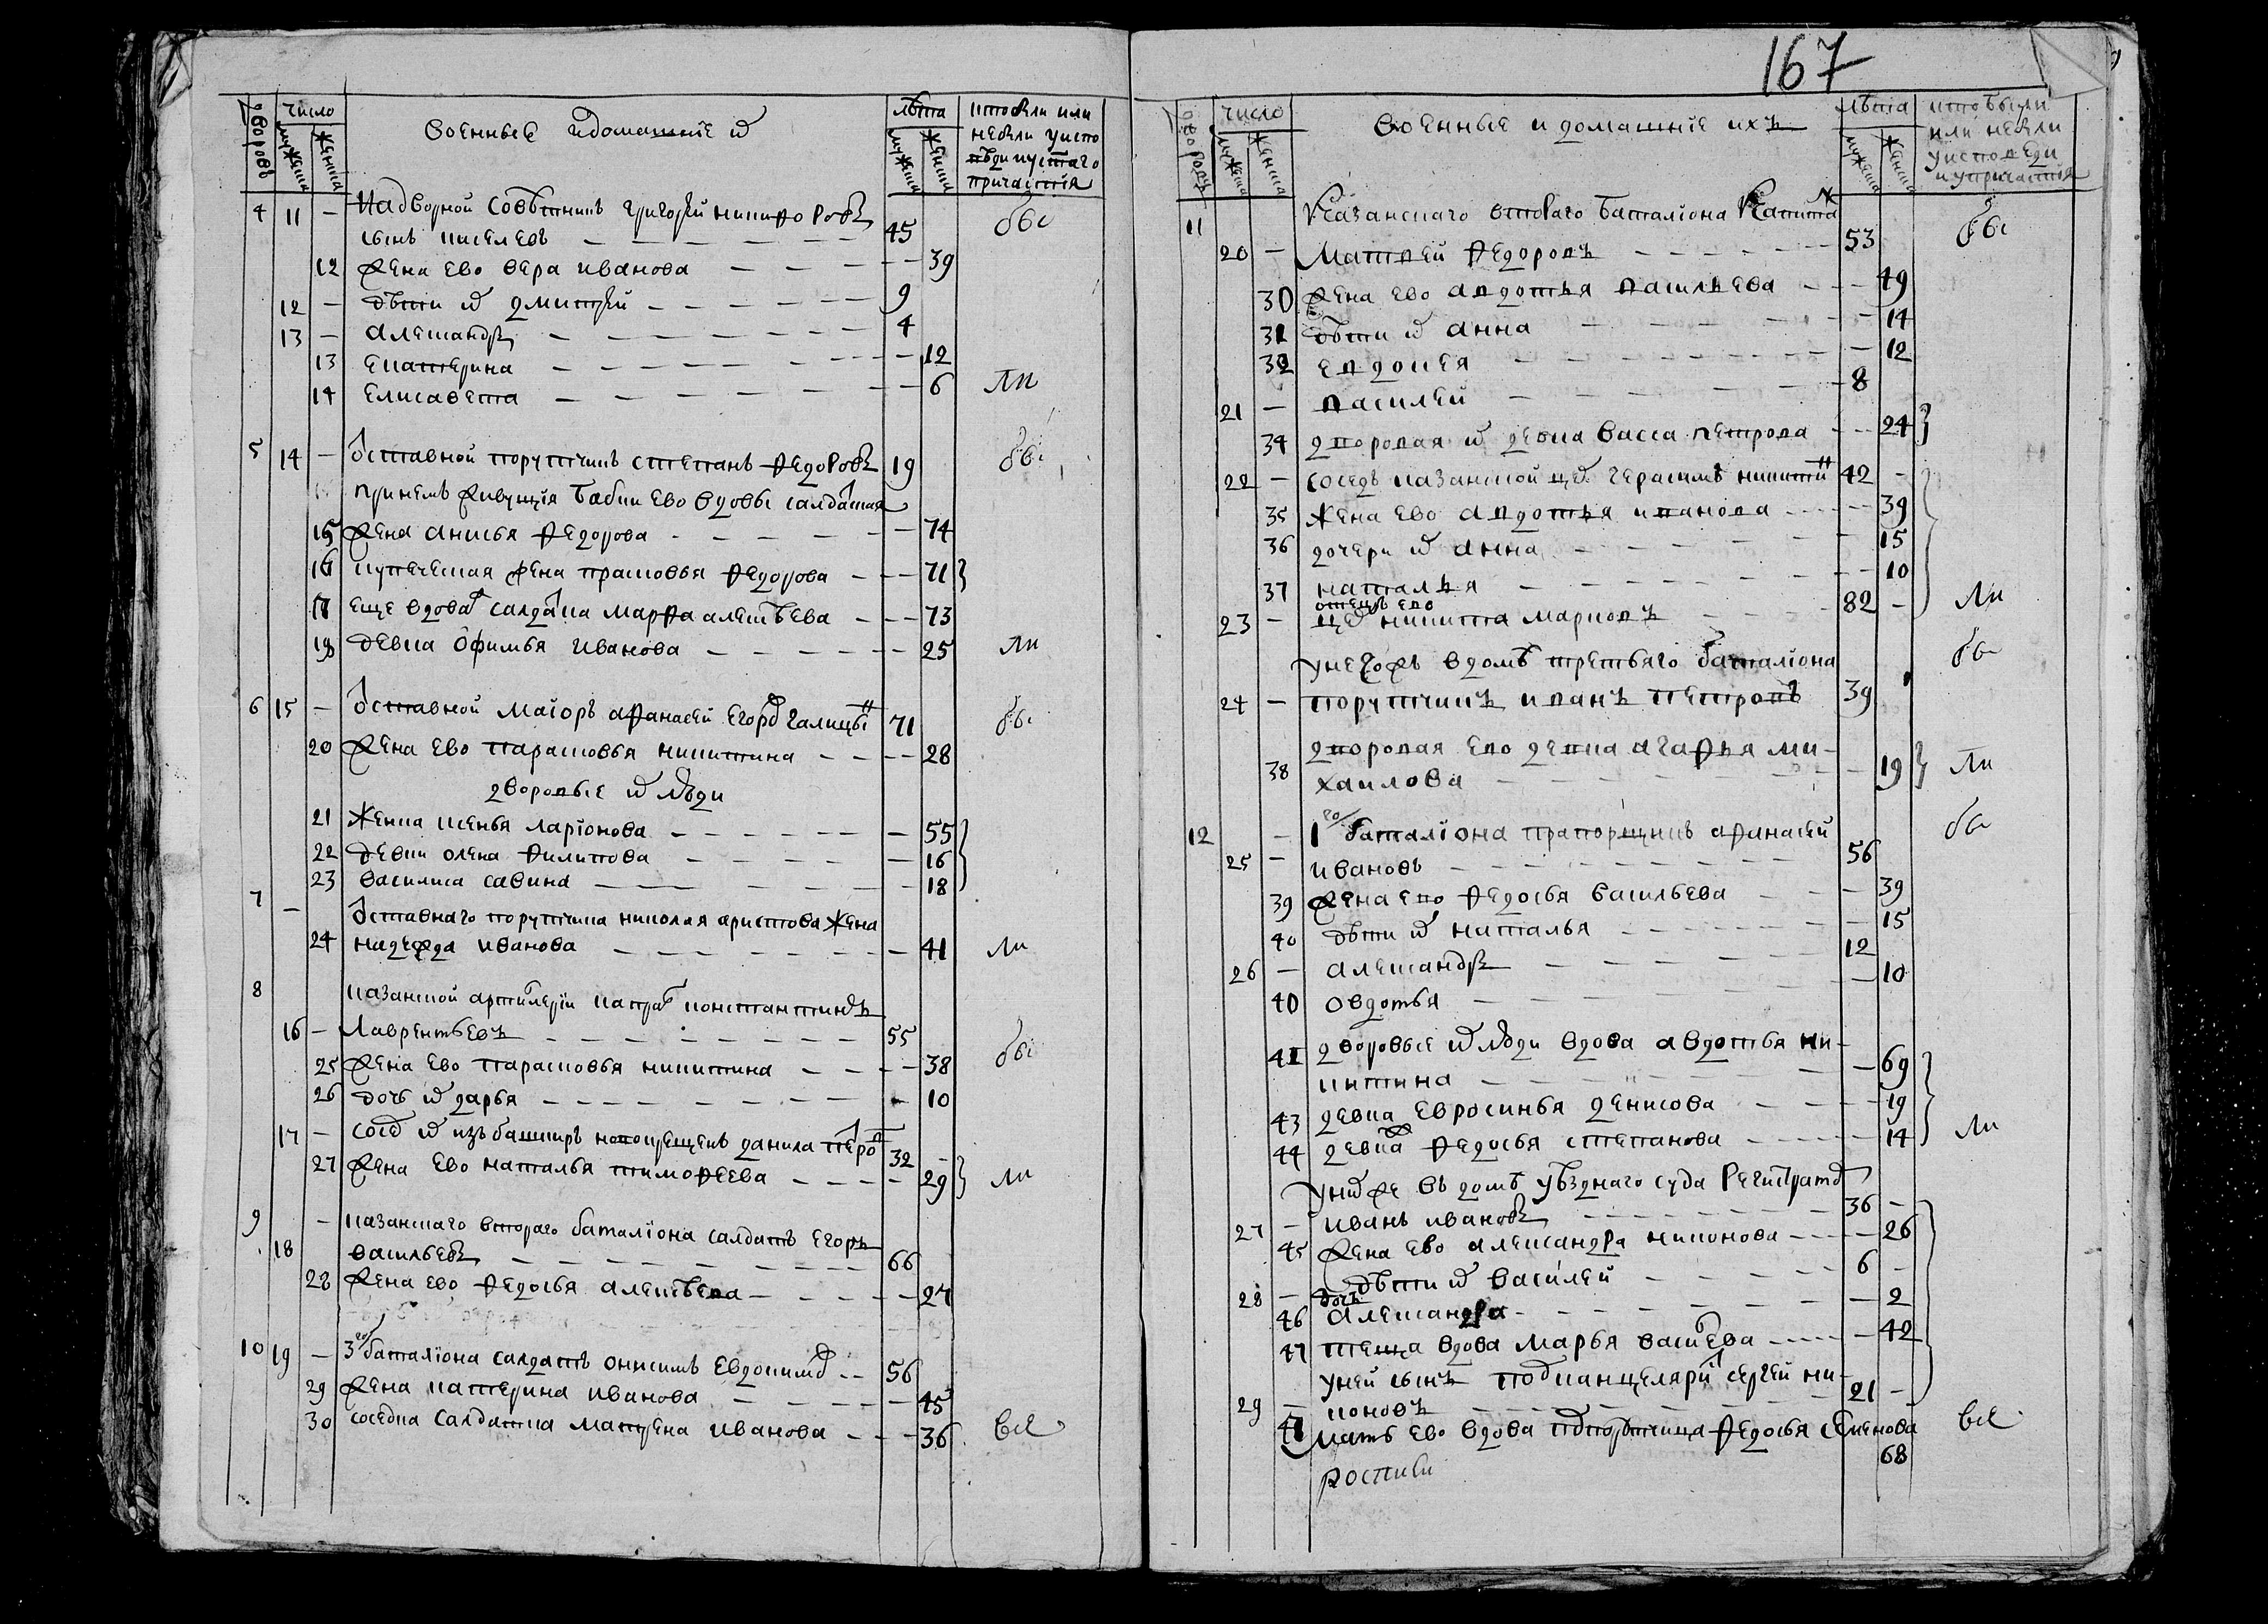 167
дворовъ
число
мужеска
женска
военные идомашніе ихъ
лѣта
мужеска
женска
ктобѣли или
небѣли уиспо
вѣди иустаго
причастія
4 11 – Надворной Совѣтникъ григорей никифоровъ
сынъ киселевъ – 45 обы
12 жена ево вера иванова – 39
12 – дѣти их дмитрей – 9
13 – александръ – 4
13 екатерина – 12
14 елисавета – 6 ли
5 14 – отставной порутчикъ степанъ федоровъ 19 обы
принемъ живущія бабки ево вдовы салдатская
15 жена анисья федорова – 74
16 купеческая жена прасковья федорова – 71
17 еще вдова салдатка марфа алексѣева – 73
18 девка офимья иванова – 25 ли
6 15 – отставной маіоръ афанасей егоров галицкий 71 обы
20 жена ево парасковья никитина – 28
дворовые их люди
21 женка ксенья ларіонова – 55
22 девки олена филипова – 16
23 василиса савина – 18
7 – отставнаго порутчика николая аристова жена
24 надежда иванова – 41 ли
8 казанской артилеріи капрал константинъ
16 – Лаврентьевъ – 55 обы
25 жена ево парасковья никитина – 38
26 дочь их дарья – 10
17 – сосед их изъ башкиръ новокрещенъ данила петро 32
27 жена ево наталья тимофеева – 29 ли
9 – казанскаго втораго баталіона салдатъ егоръ
18 васильевъ – 66
28 жена ево федосья алексѣева – 27
10 19 – 3го баталіона салдатъ онисимъ евдокимов – 56
29 жена катерина иванова – 45
30 соседка салдатка матрена иванова – 36 все
дворовъ
число
мужеска
женска
военные и домашніе ихъ
лѣта
мужеска
женска
ктобыли
или небѣли
уисповеди
иупричастія
11 Казанскаго втораго баталіона Капитан
20 – Матвей федоровъ – 53 обы
30 жена ево авдотья васильева – 49
31 дѣти их анна – 14
32 евдокея – 12
21 – василей – 8
34 дворовая их девка васса петрова – 24
22 – соседъ казанской цех герасимъ никитин 42 –
35 жена ево авдотья иванова – 39
36 дочери их анна – 15
37 наталья – 10
отецъ ево
23 – цех никита марковъ – 82 – ли
унегожъ вдомѣ третьяго баталіона
24 – порутчикъ иванъ петровъ 39 обы
38 дворовая ево девка агафья ми-
хаилова – 19 ли
12 – 1го баталіона прапорщикъ афанасей
25 – ивановъ – 56 обы
39 жена ево федосья васильева – 39
40 дѣти их наталья – 15
26 – александръ – 12
40 овдотья – 10
41 дворовые их люди вдова авдотья ни-
китина – 69
43 девка евросинья денисова – 19
44 девка федосья степанова – 14 ли
униж же въ домѣ уѣзднаго суда Регистратор
27 – иванъ ивановъ – 36 –
45 жена ево александра никонова – 26
28 – дѣти их василей – 6 –
дочь
46 александра – 2
47 теща вдова марья васильева – 42
уней сынъ подканцеляри сергей ни-
29 – коновъ – 21 –
48 мать ево вдова подпорутчица федосья семенова
68 все
роспиби